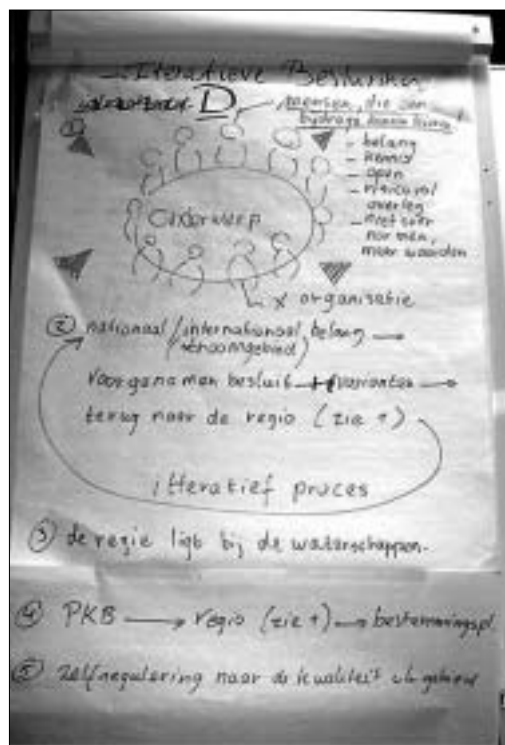 Iteratieve
D
mensen, die een
bydrage kunnen
①
- belang
- kennis
- open
overleg
- niet over
normen,
maar waarden
Onderwerp
x organisatie
② nationaal / internationaal, belang →
(stroomgebied)
voorgenomen besluit + varianten →
terug naar de regio (zie 1)
itteratief proces
③ de regie ligt bij de waterschappen.
④ PKB → regio (zie 1) → bestemmingspl.
⑤ zelfregulering naar de kwaliteit gebied